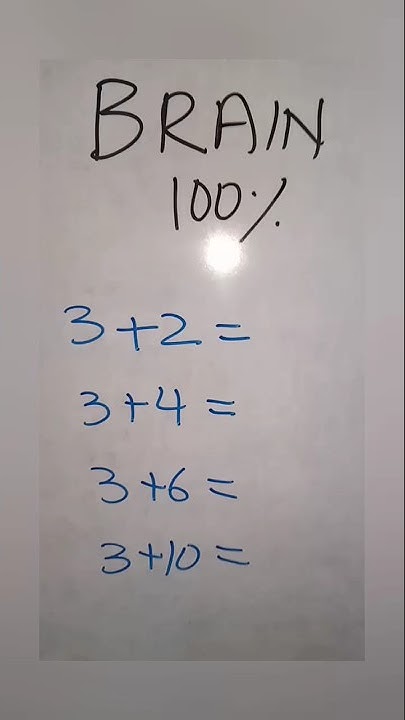 BRAIN
100%
3+2=
3+4=
3+6=
3+10=